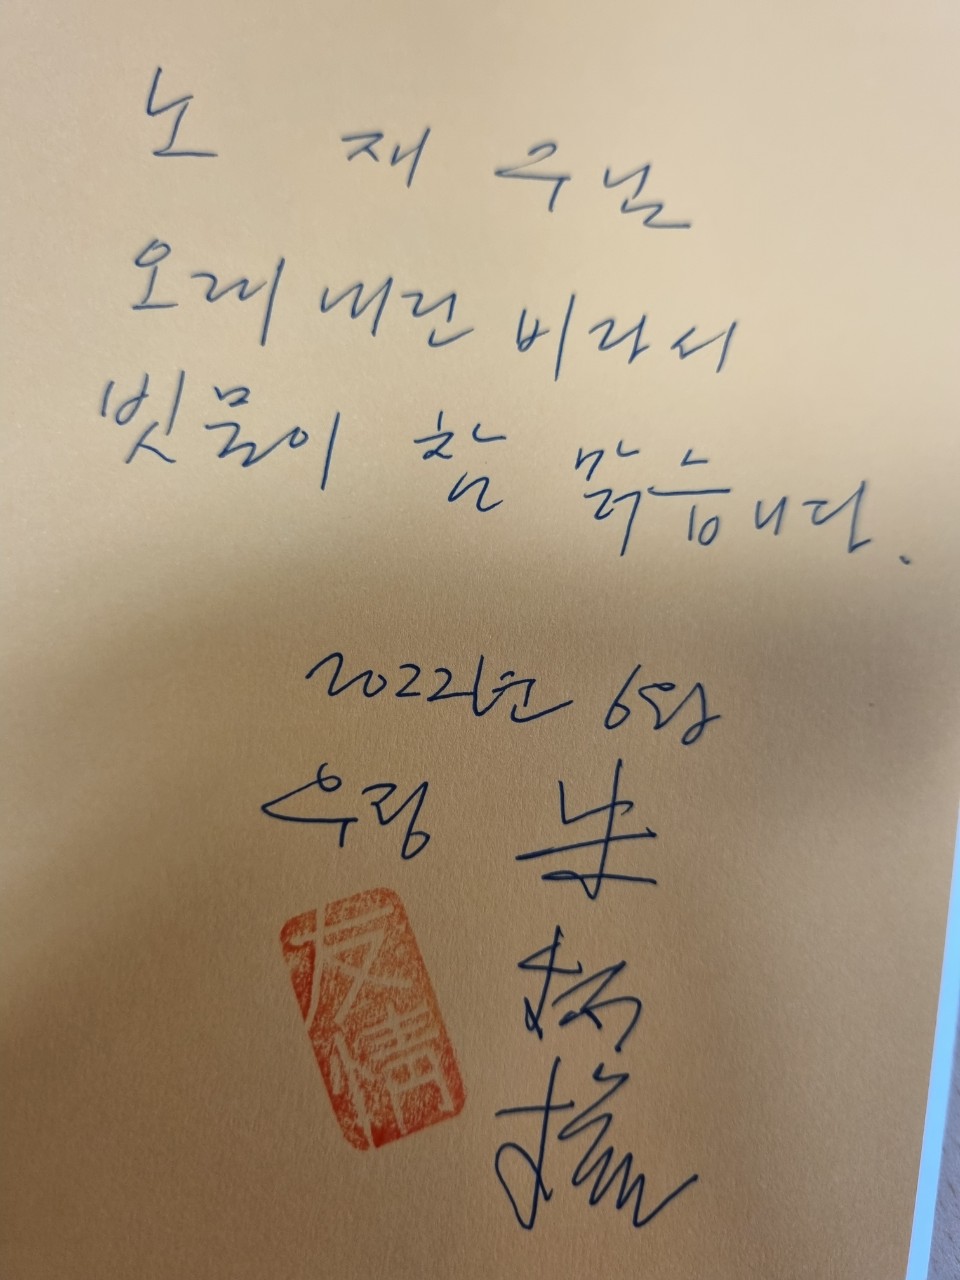 노 재 우님
오래 내린 비라서
빗물이 참 맑습니다.
2022년 6월
우정
友情